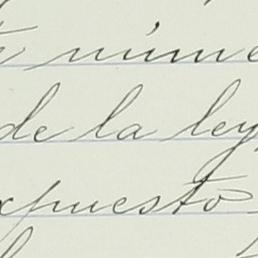 núme
de la ley,
xpuesto